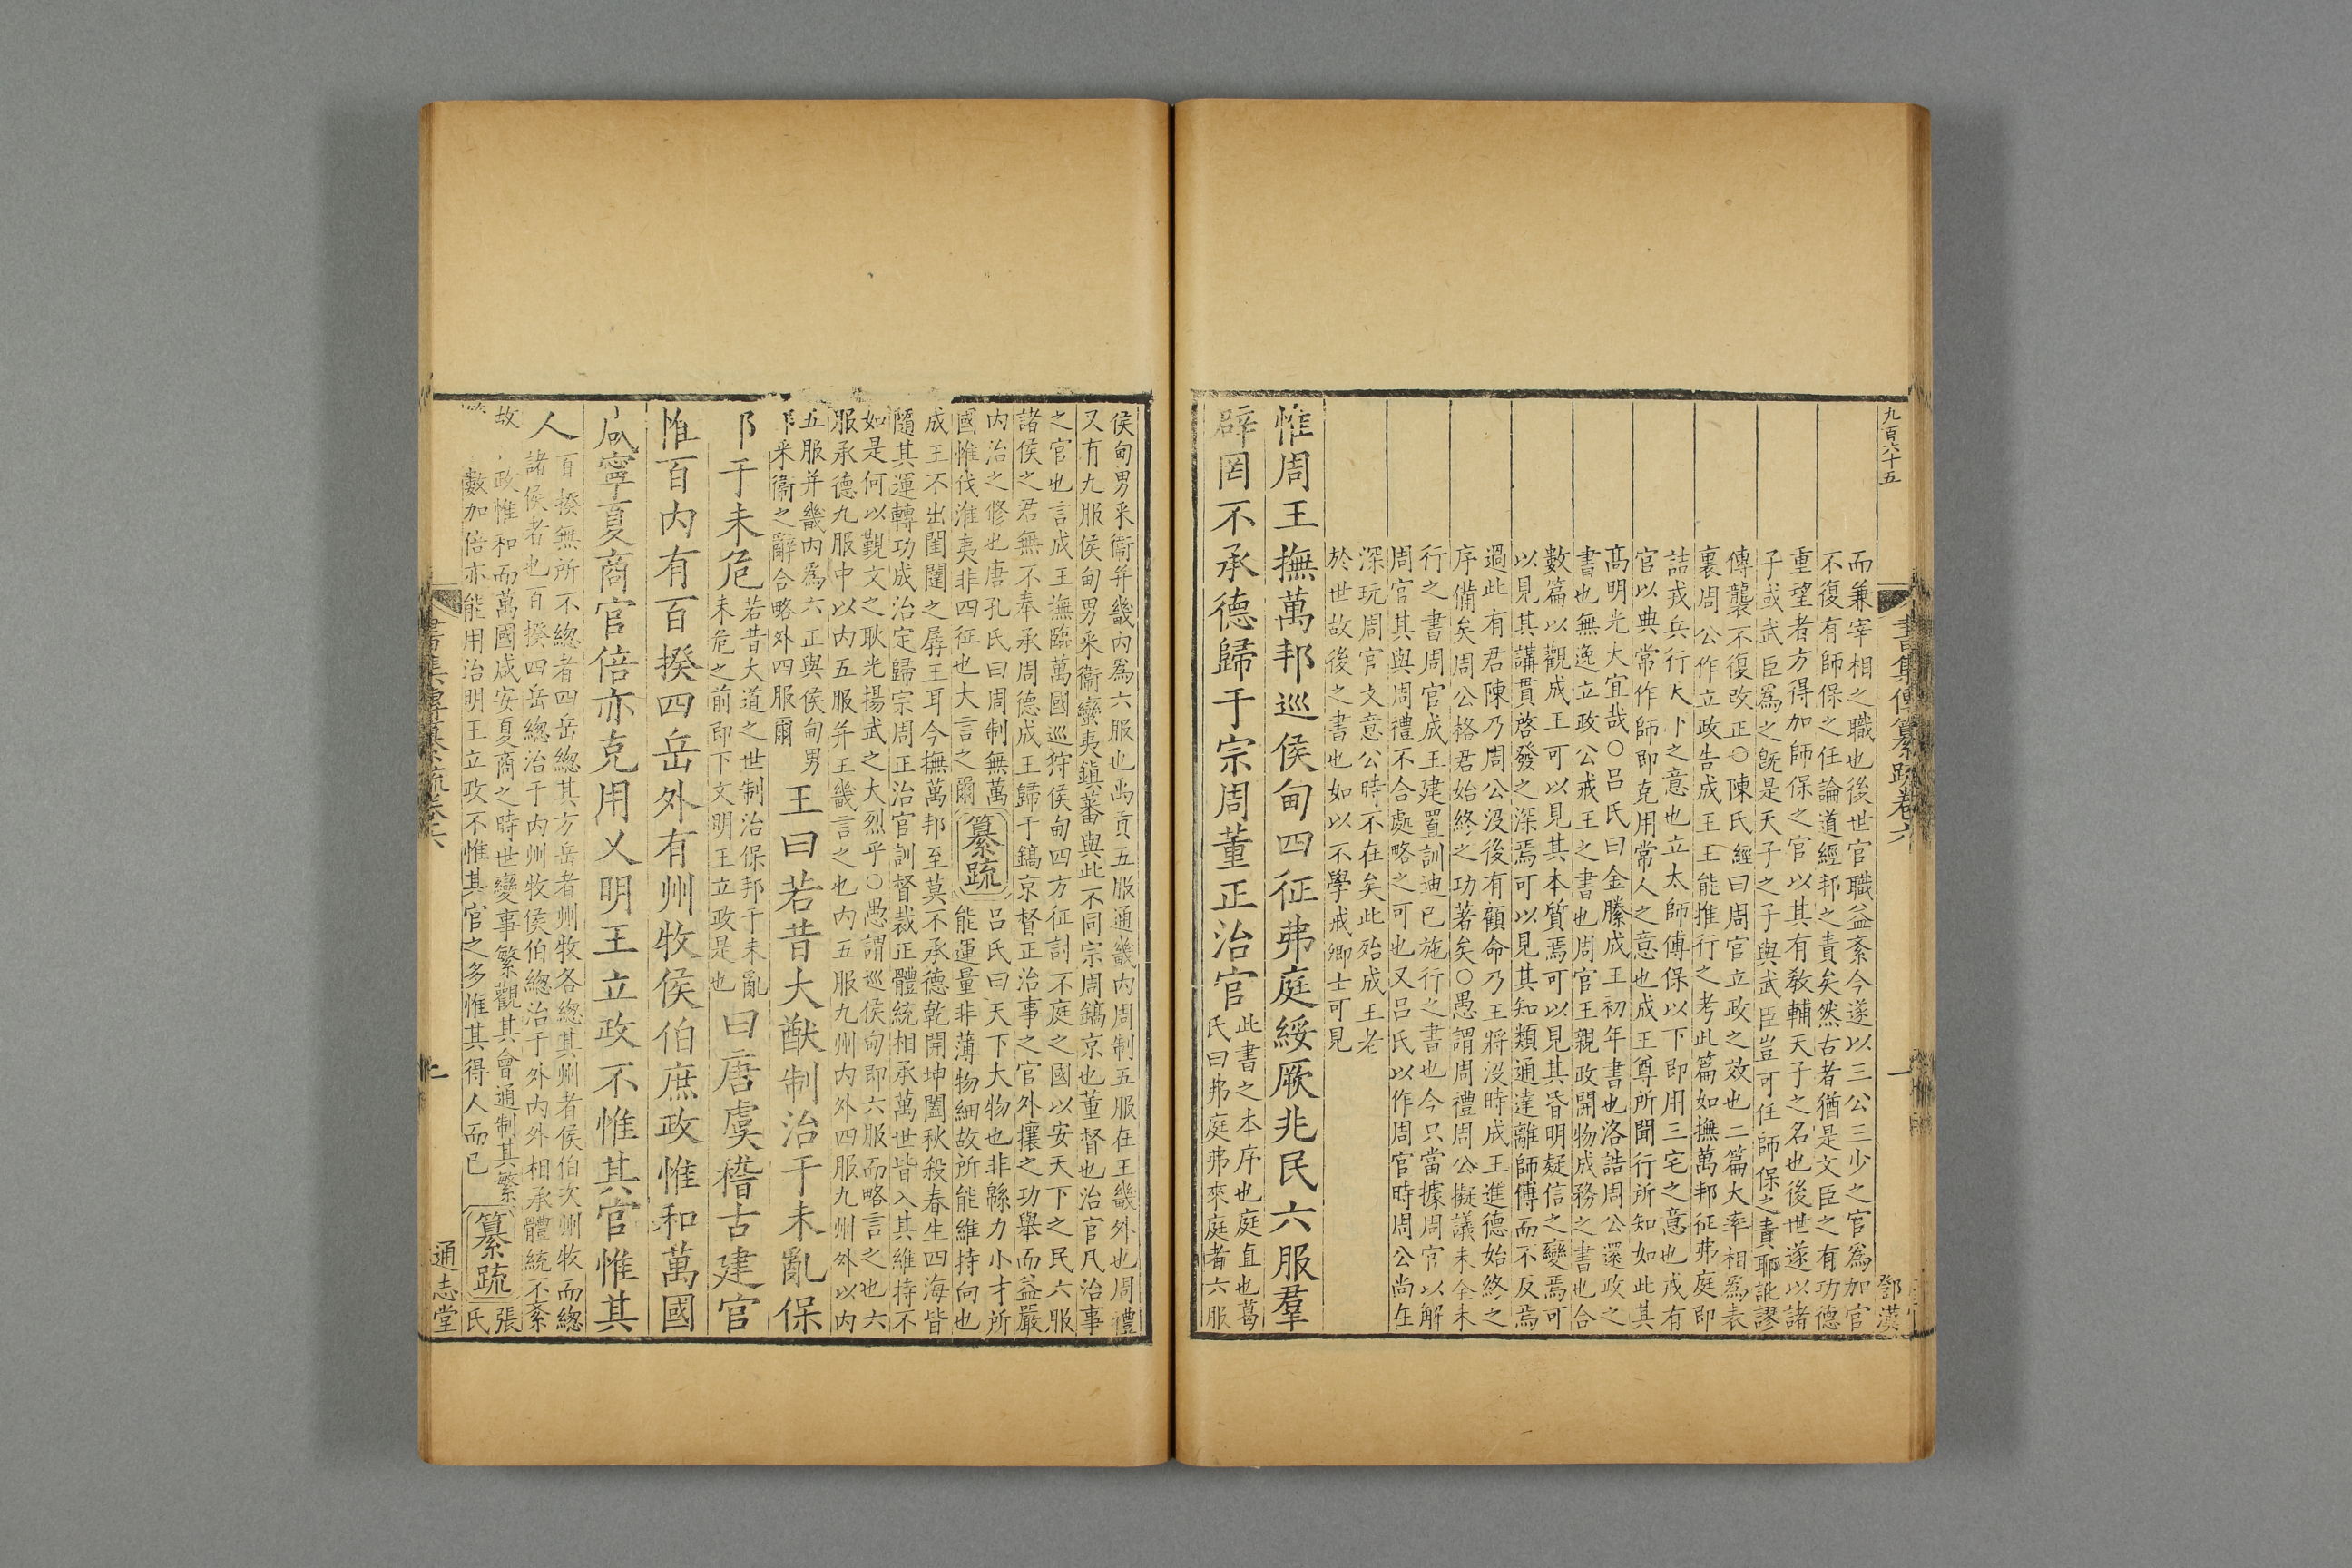 九百六十五
書集傳纂疏卷六
一
鄧漢
而兼宰相之職也後世官職益紊今遂以三公三少之官爲加官
不復有師保之任論道經邦之責矣然古者猶是文臣之有功德
重望者方得加師保之官以其有教輔天子之名也後世遂以諸
子或武臣爲之旣是天子之子與武臣豈可任師保之責耶訛謬
傳襲不復改正○陳氏經曰周官立政之效也二篇大率相爲表
裏周公作立政告成王王能推行之考此篇如撫萬邦征弗庭即
詰戎兵行大卜之意也立太師傅保以下即用三宅之意也戒有
官以典常作師即克用常人之意也成王尊所聞行所知如此其
髙明光大宜哉○呂氏曰金縢成王初年書也洛誥周公還政之
書也無逸立政公戒王之書也周官王親政開物成務之書也合
數篇以觀成王可以見其本質焉可以見其昏明疑信之變焉可
以見其講貫啓發之深焉可以見其知類通達離師傅而不反焉
過此有君陳乃周公沒後有顧命乃王將沒時成王進德始終之
序備矣周公格君始終之功著矣○愚謂周禮周公擬議未全未
行之書周官成王建置訓迪已施行之書也今只當據周官以解
周官其與周禮不合處略之可也又呂氏以作周官時周公尚在
深玩周官文意公時不在矣此殆成王老
於世故後之書也如以不學戒卿士可見
惟周王撫萬邦巡侯甸四征弗庭綏厥兆民六服羣
辟罔不承德歸于宗周董正治官此書之本序也庭直也葛
氏曰弗庭弗來庭者六服
侯甸男采衞并畿内爲六服也禹貢五服通畿内周制五服在王畿外也周禮
又有九服侯甸男采衞蠻夷鎭蕃與此不同宗周鎬京也董督也治官凡治事
之官也言成王撫臨萬國巡狩侯甸四方征討不庭之國以安天下之民六服
諸侯之君無不奉承周德成王歸于鎬京督正治事之官外攘之功舉而益嚴
内治之修也唐孔氏曰周制無萬
國惟伐淮夷非四征也大言之爾
纂疏
呂氏曰天下大物也非緜力小才所
能運量非薄物細故所能維持向也
成王不出閨闥之孱王耳今撫萬邦至莫不承德乾開坤闔秋殺春生四海皆
隨其運轉功成治定歸宗周正治官訓督裁正體統相承萬世皆入其維持不
如是何以覲文之耿光揚武之大烈乎○愚謂巡侯甸即六服而略言之也六
服承德九服中以内五服并王畿言之也内五服九州内外四服九州外以内
五服并畿内爲六正與侯甸男
采衞之辭合略外四服爾
王曰若昔大猷制治于未亂保
于未危若昔大道之世制治保邦于未亂
未危之前即下文明王立政是也
曰唐虞稽古建官
惟百内有百揆四岳外有州牧侯伯庶政惟和萬國
咸寧夏商官倍亦克用乂明王立政不惟其官惟其
人
百揆無所不總者四岳總其方岳者州牧各總其州者侯伯次州牧而總
諸侯者也百揆四岳總治于内州牧侯伯總治于外内外相承體統不紊
故
政惟和而萬國咸安夏商之時世變事繁觀其會通制其繁
數加倍亦能用治明王立政不惟其官之多惟其得人而已
纂疏
張
氏
書集傳纂疏卷六
二
通志堂